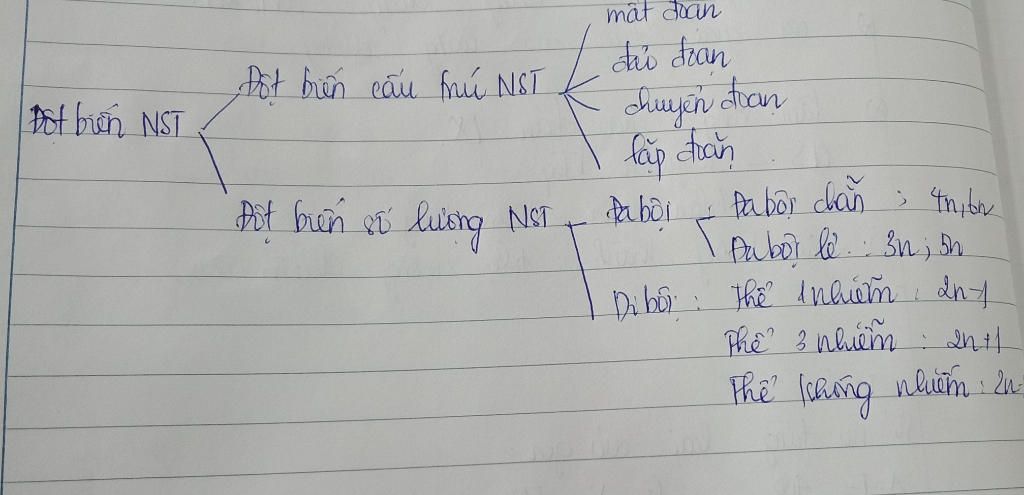 mất đoạn
Đột biến cấu trúc NST
đảo đoạn
Đột biến NST
chuyển đoạn
lặp đoạn
Đột biến số lượng NST - Đa bội - Đa bội chẵn : 4n, 6n
Đa bội lẻ : 3n ; 5n
Dị bội : Thể 1 nhiễm : 2n-1
Thể 3 nhiễm : 2n+1
Thể không nhiễm : 2n-